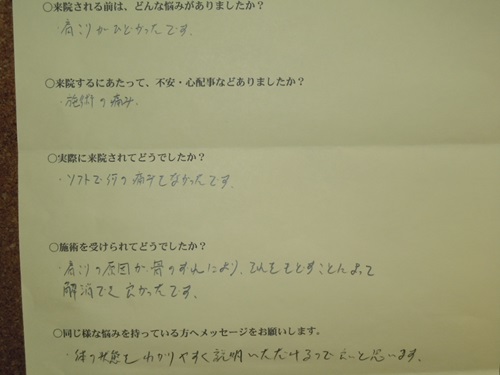 ○来院される前は、どんな悩みがありましたか？
・肩こりがひどかったです。
○来院するにあたって、不安・心配事などありましたか？
・施術の痛み、
○実際に来院されてどうでしたか？
・ソフトで何の痛みもなかったです。
○施術を受けられてどうでしたか？
・肩こりの原因が、骨のずれにより、それをもどすことによって
解消でき良かったです。
○同じ様な悩みを持っている方へメッセージをお願いします。
・体の状態をわかりやすく説明いただけるので良いと思います。